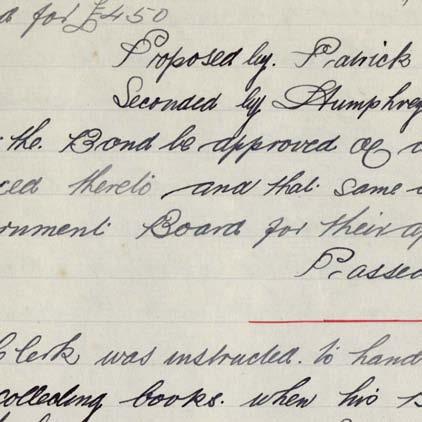 for £450
Proposed by. Patrick
Seconded by Humphrey
the. Bond be approved of
thereto and that. same
Board for their
Passed
Clerk was instructed. to hand
collecting books. when his